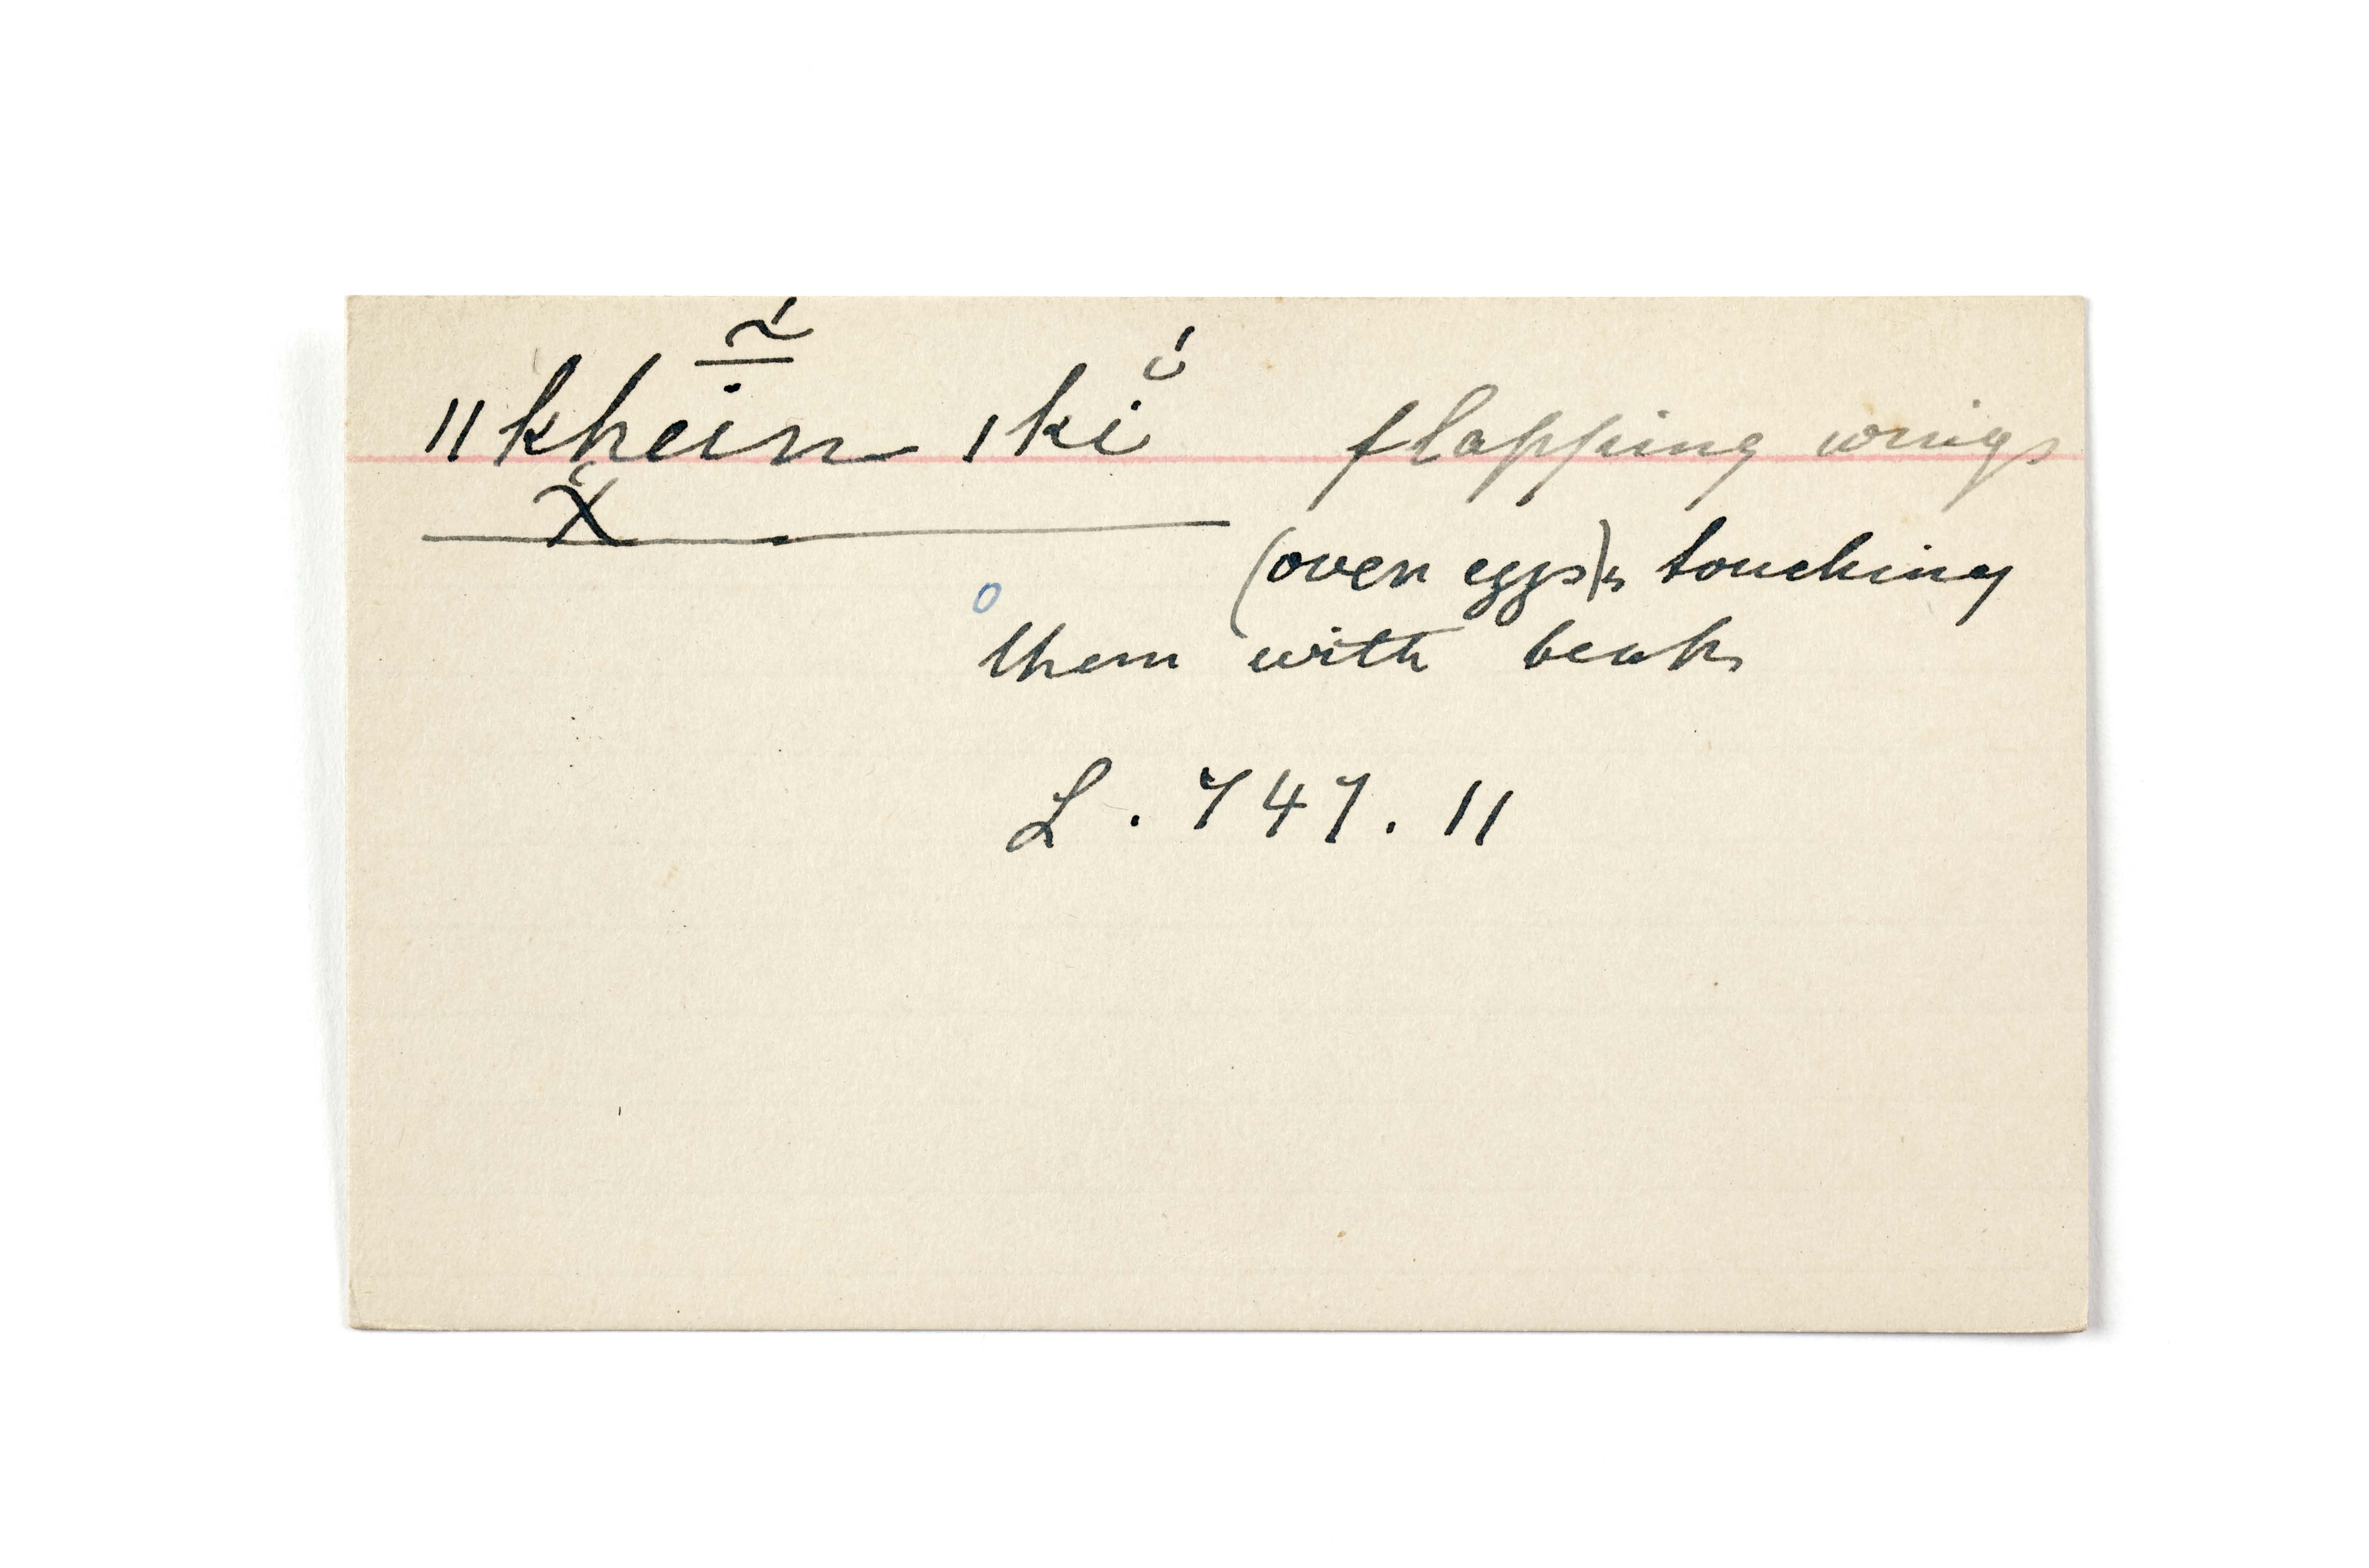 ǁkhein ǀki flapping wings
χ
(over eggs), touching
o
them with beak
L. 747. 11